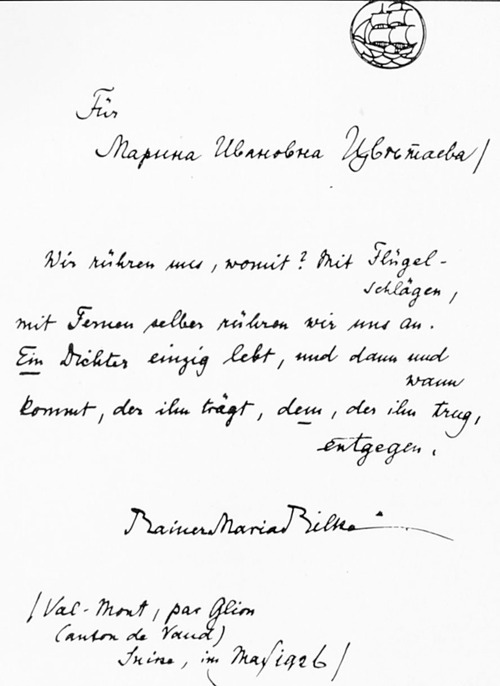 Für
Марина Ивановна Цвѣтаева/
Wir rühren uns, womit? Mit Flügel-
schlägen,
mit Fernen selber rühren wir uns an.
Ein Dichter einzig lebt, und dann und
wann
kommt, der ihn trägt, dem, der ihn trug,
entgegen.
Rainer Maria Rilke
/Val-Mont, par Glion
Canton de Vaud)
Suisse, im May 1926/